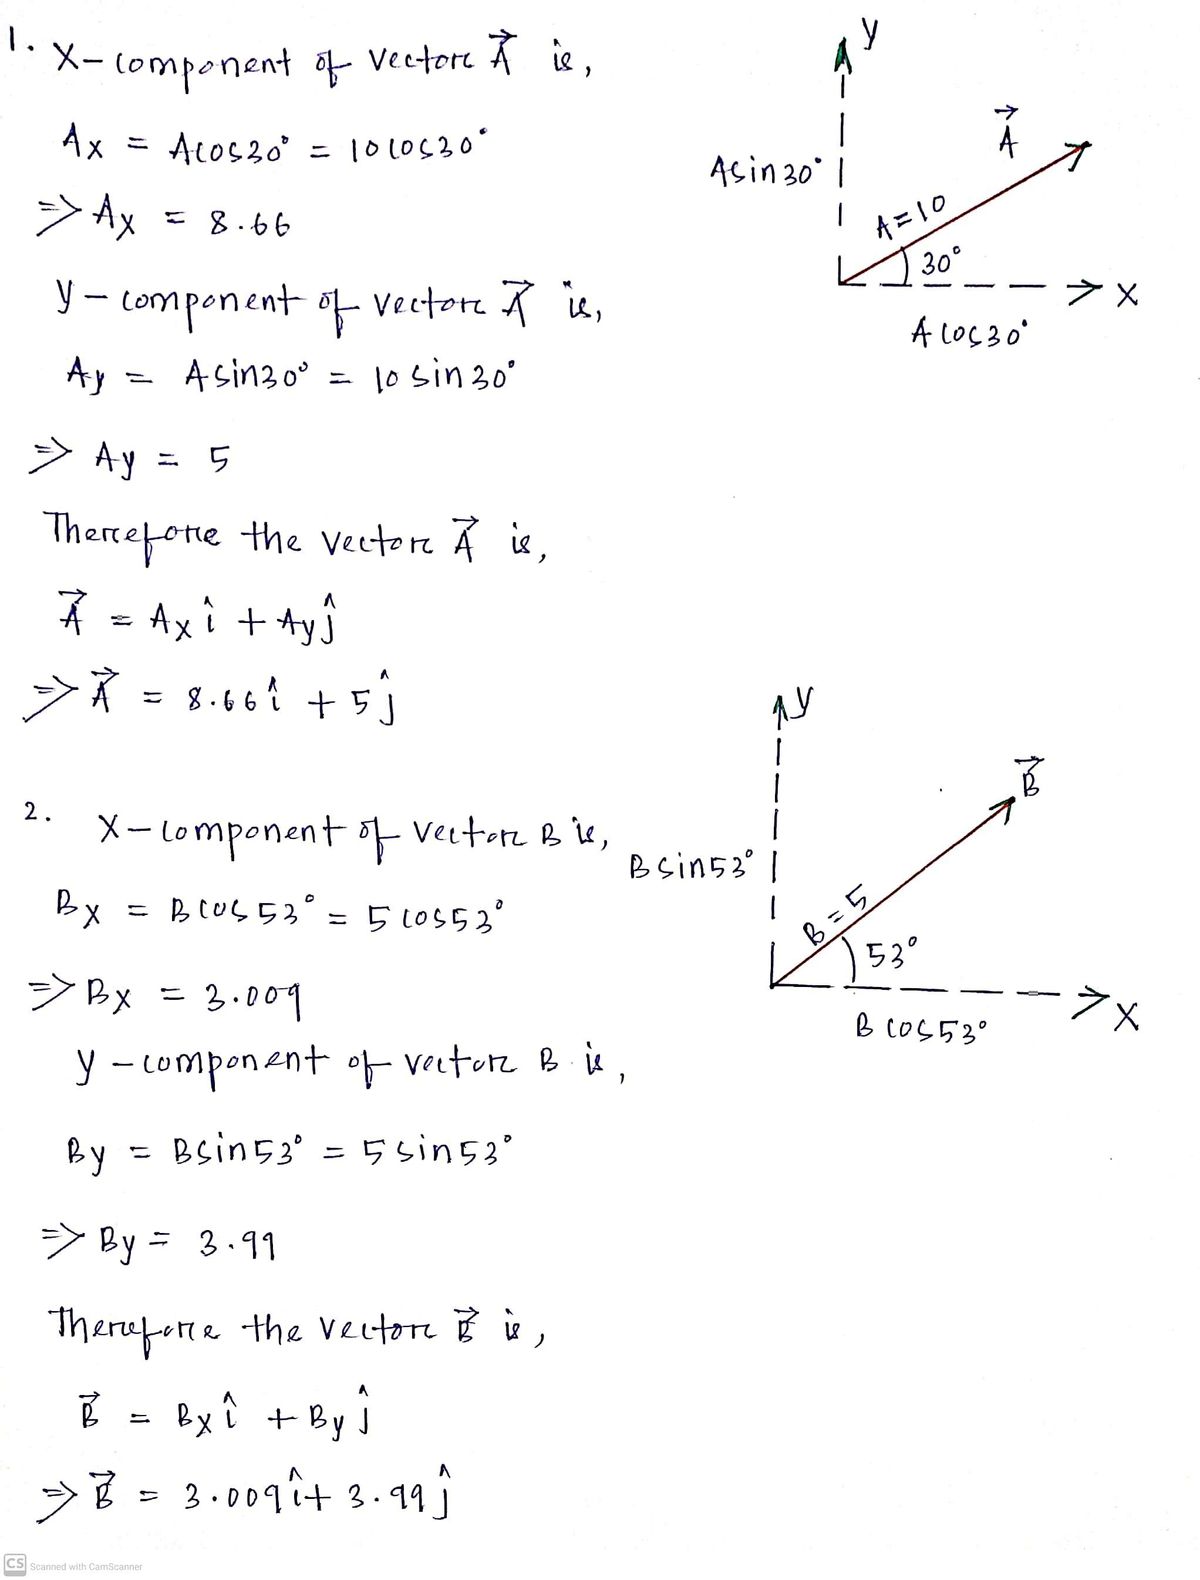 1. X-component of vector A⃗ is,
Ax = Acos30° = 10cos30°
=> Ax = 8.66
y-component of vector A⃗ is,
Ay = Asin30° = 10 sin30°
=> Ay = 5
Therefore the vector A⃗ is,
A⃗ = Ax î + Ay ĵ
=> A⃗ = 8.66 î + 5 ĵ
y
A⃗
Asin30°
A=10
30°
X
A cos30°
2. X-component of vector B is,
Bx = Bcos53° = 5 cos53°
=> Bx = 3.009
y-component of vector B is,
By = Bsin53° = 5 sin53°
=> By = 3.99
Therefore the vector B⃗ is,
B⃗ = Bx î + By ĵ
=> B⃗ = 3.009 î + 3.99 ĵ
y
B⃗
Bsin53°
B=5
53°
X
B cos53°
CS Scanned with CamScanner